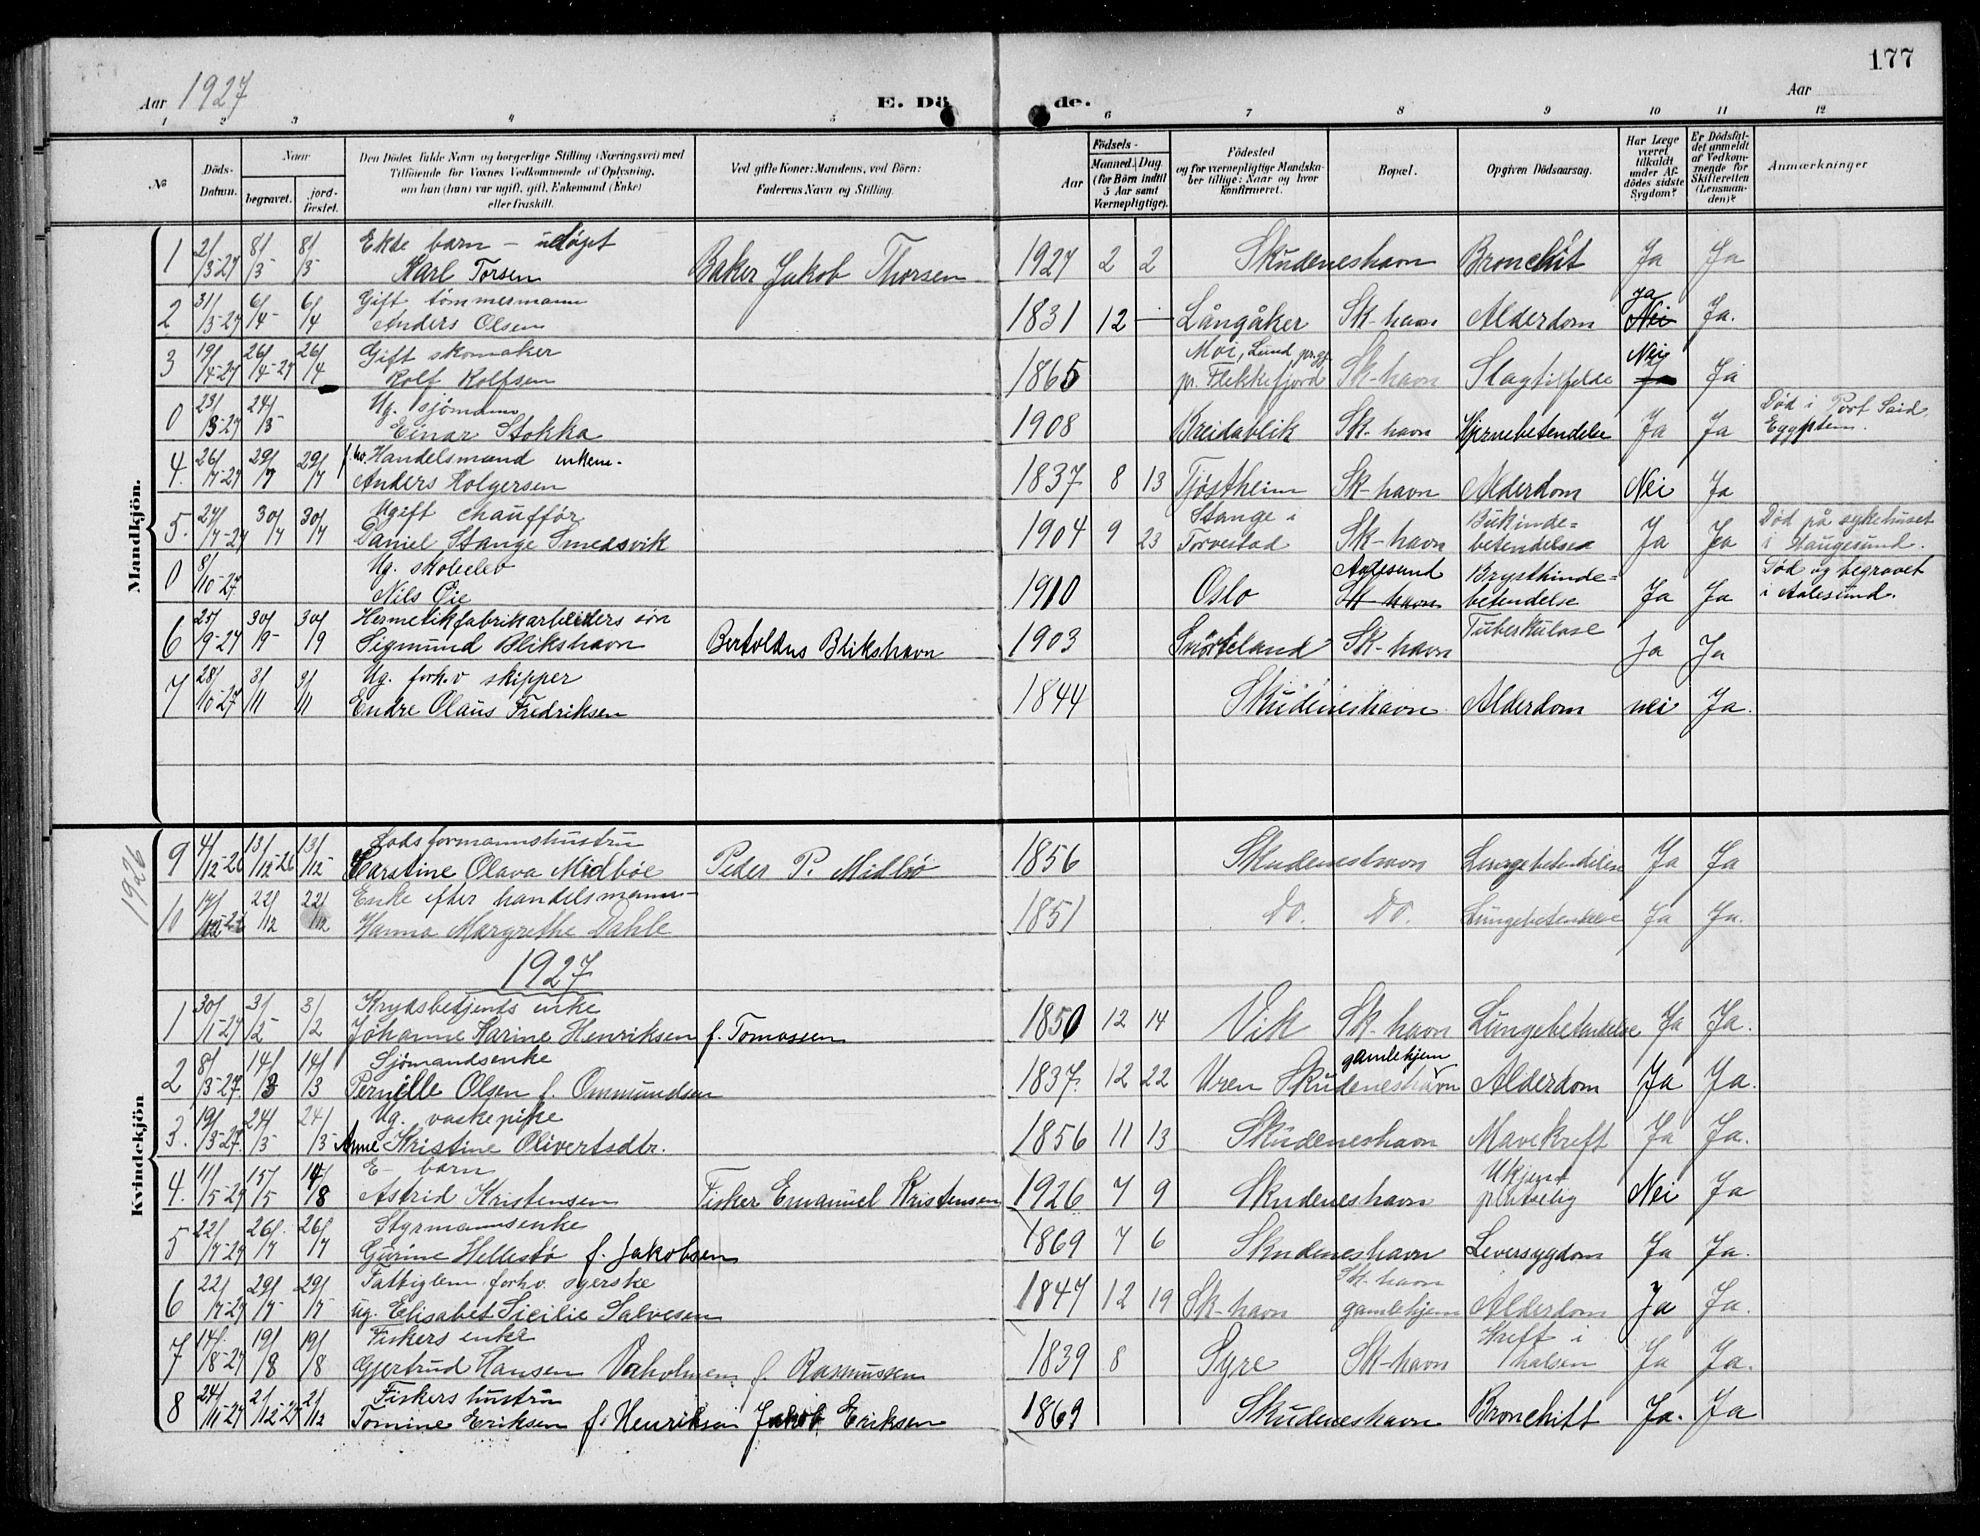 177
Aar 1927 E. Dö de. Aar
1 2 3 4 5 6 7 8 9 10 11 12
No
Döds-Datum.
Naar
begravet.
jord-fæstet.
Den Dödes fulde Navn og borgerlige Stilling (Næringsvei) med
Tilföiende for Voxnes Vedkommende af Oplysning,
om han (hun) var ugift, gift, Enkemand (Enke)
eller fraskilt.
Ved gifte Koner: Mandens, ved Börn:
Faderens Navn og Stilling.
Födsels-
Aar
Maaned. Dag
(for Börn indtil
5 Aar samt
Værnepligtige).
Födested
og for værnepligtige Mandska-
ber tillige: Naar og hvor
konfirmeret.
Bopæl.
Opgiven Dödsaarsag.
Har Læge
været
tilkaldt
under Af-
dödes sidste
Sygdom?
Er Dödsfal-
det anmeldt
af Vedkom-
mende for
Skifteretten
(Lensman-
den)?
Anmærkninger
Mandkjön.
Ekte barn – udöpt
1 2/3-27 8/3 8/3 Karl Torsen Baker Jakob Thorsen 1927 2 2 Skudeneshavn Bronchit Ja Ja
Gift tömmermann Ja
2 31/3-27 6/4 6/4 Anders Olsen 1831 12 – Långåker Sk-havn Alderdom Nei Ja.
Gift skomaker Moi, Lund pr.gj. Nei
3 19/4-27 26/4-27 26/4 Rolf Rolfsen 1865 pr. Flekkefjord Sk-havn Slagtilfelde Ja Ja
Ug. sjömann Död i Port Said,
0 23/3-27 24/3 Einar Stokka 1908 Breidablik Sk. havn Hjernebetendelse Ja Ja Egypten.
f.hv. Handelsmand enkem.
4. 26/7-27 29/7 29/7 Anders Holgersen 1837 8 13 Tjöstheim Sk-havn Alderdom Nei Ja
Ugift chaufför Stange i Bukinde= Död på sykehuset
5. 27/7-27 30/7 30/7 Daniel Stange Smedsvik 1904 9 23 Torvestad Sk-havn betendelse Ja Ja i Haugesund.
Ug. skoleelev Aalesund Brysthinde= Död og begravet
0 8/10-27 Nils Öie 1910 Oslo Sk-havn betendelse Ja Ja i Aalesund.
Hermetikfabrikarbeiders sön Tuberkulose
6 25/9-27 30/9- 30/9 Sigmund Blikshavn Bertoldus Blikshavn 1903 Snörteland Sk-havn Ja Ja
Ug. forh.v skipper
7 28/10-27 3/11 3/11 Endre Olaus Fredriksen 1844 Skudeneshavn Alderdom nei Ja.
Kvindekjön
1926
Lodsformannshustru
9 4/12-26 13/12-26 13/12- Karstine Olava Midböe Peder P. Midbö 1856 Skudeneshavn Lungebetendelse Ja Ja
Enke efter handelsmann
10 17/12-26 22/12 22/12 Hanna Margrethe Dahle 1851 Do. Do. Lungebetendelse Ja Ja.
1927
Krydsbetjents enke
1 30/1-27 3/2 3/2 Johanne Karine Henriksen f. Tomassen 1850 12 14 Vik Sk-havn Lungebetendelse Ja Ja.
Sjömandsenke gamlehjem
2 8/3-27. 14/3 14/3 Pernille Olsen f. Ommundsen 1837. 12 22 Vren Skudeneshavn Alderdom Ja Ja.
Ug. vaskepike
3. 19/3-27. 24/3 24/3 Anne Kristine Olivertsdtr. 1856 11 13 Skudeneshavn Mavekreft Ja Ja.
E– barn Ukjend
4. 11/5-27 15/5 14/8 Astrid Kristensen Fisker Emanuel Kristensen 1926 7 9 Skudeneshavn plutselig Nei Ja
Styrmannsenke
5 22/7-27 26/7 26/7 Gurine Hellesö f. Jakobsen 1869 7 6 Skudeneshavn Leversygdom Ja Ja.
Fattiglem forhv. syerske Sk. havn
6 22/7-27 29/7 29/7 ug. Elisabet Sicilie Salvesen 1847 12 19 Sk-havn gamlehjem Alderdom Ja Ja.
Fiskers enke Kreft i
7 14/8-27 19/8 19/8 Gjertrud Hansen Vaholmen f. Rasmussen 1839 8 Syre Sk-havn halsen Ja Ja.
Fiskers hustru
8 24/11-27 2/12-27 2/12 Tomine Eriksen f. Henriksen Jakob Eriksen 1869 Skudeneshavn Bronchitt Ja. Ja